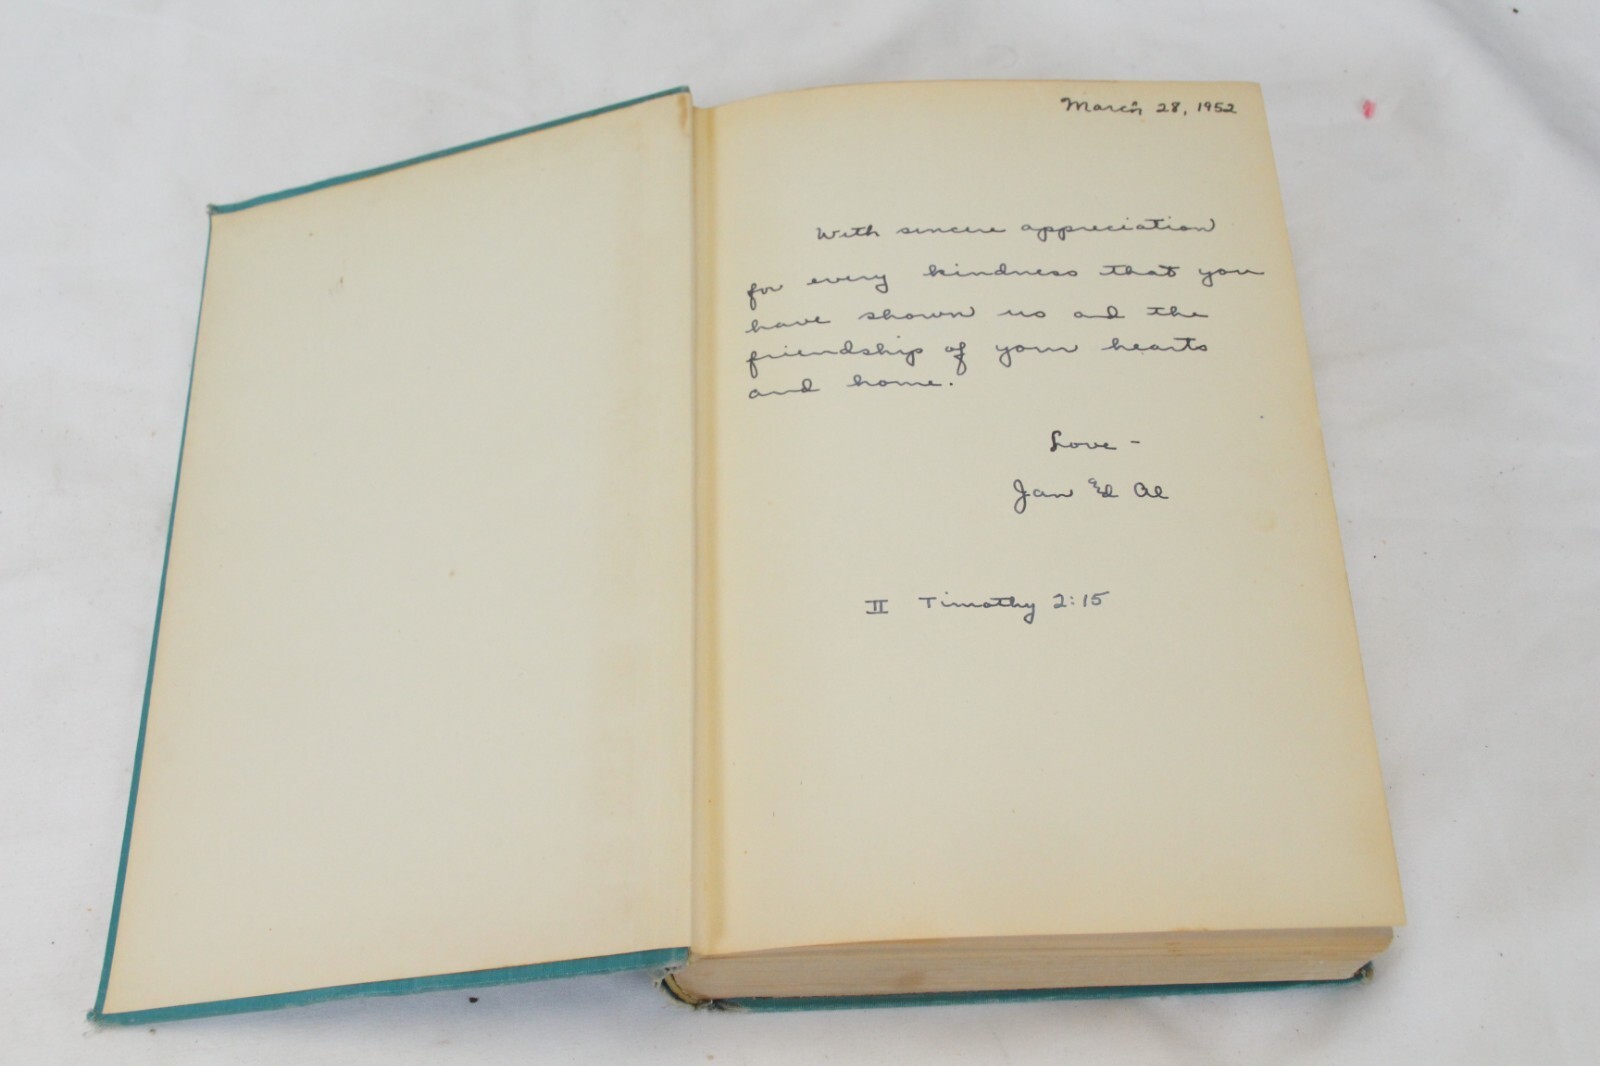 March 28, 1952
With sincere appreciation
for every kindness that you
have shown us and the
friendship of your hearts
and home.
Love -
Jan and Al
II Timothy 2:15